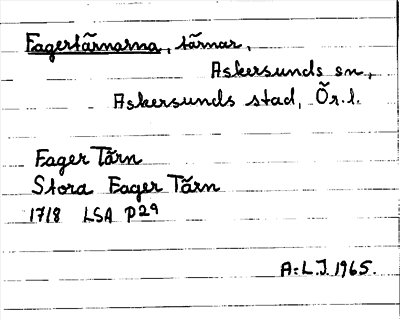 Fagertärnarna, tärnar,
Askersunds sn,
Askersunds stad, Ör.l.
Fager Tärn
Stora Fager Tärn
1718 LSA P29
A:L.J. 1965.